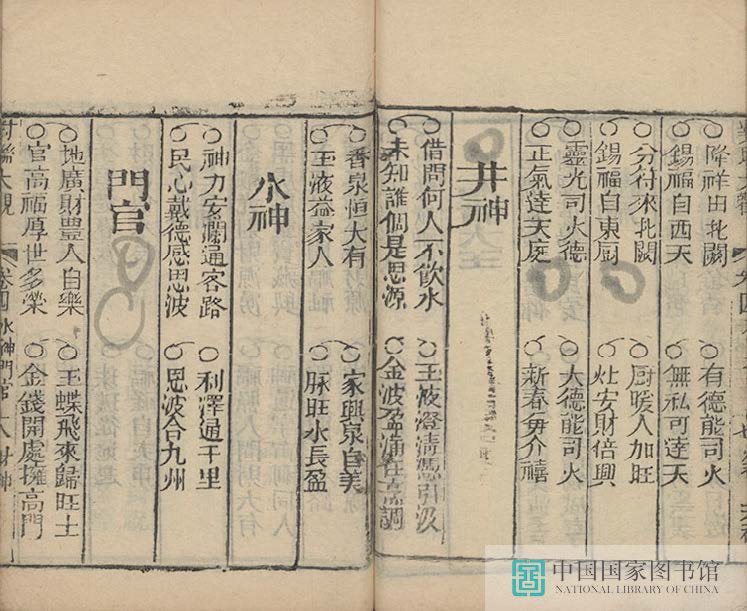 降祥由北闕
錫福自西天
有德能司火
無私可達天
分符來北闕
錫福自東厨
厨暖人加旺
灶安財倍興
靈光司火德
正氣達天庭
大德能司火
新春毋介禧
井神
借問何人不飲水
未知誰個是思源
玉液澄清憑引汲
金波盈滿任烹調
香泉恒大有
玉液益家人
家興泉自美
脉旺水長盈
水神
神力安瀾通客路
民心戴德感恩波
利澤通千里
恩波合九州
門官
地廣財豊人自樂
官高福厚世多榮
玉蝶飛來歸旺土
金錢開處擁高門
對聯大觀
卷四
水神門官
大財神
中国国家图书馆
NATIONAL LIBRARY OF CHINA